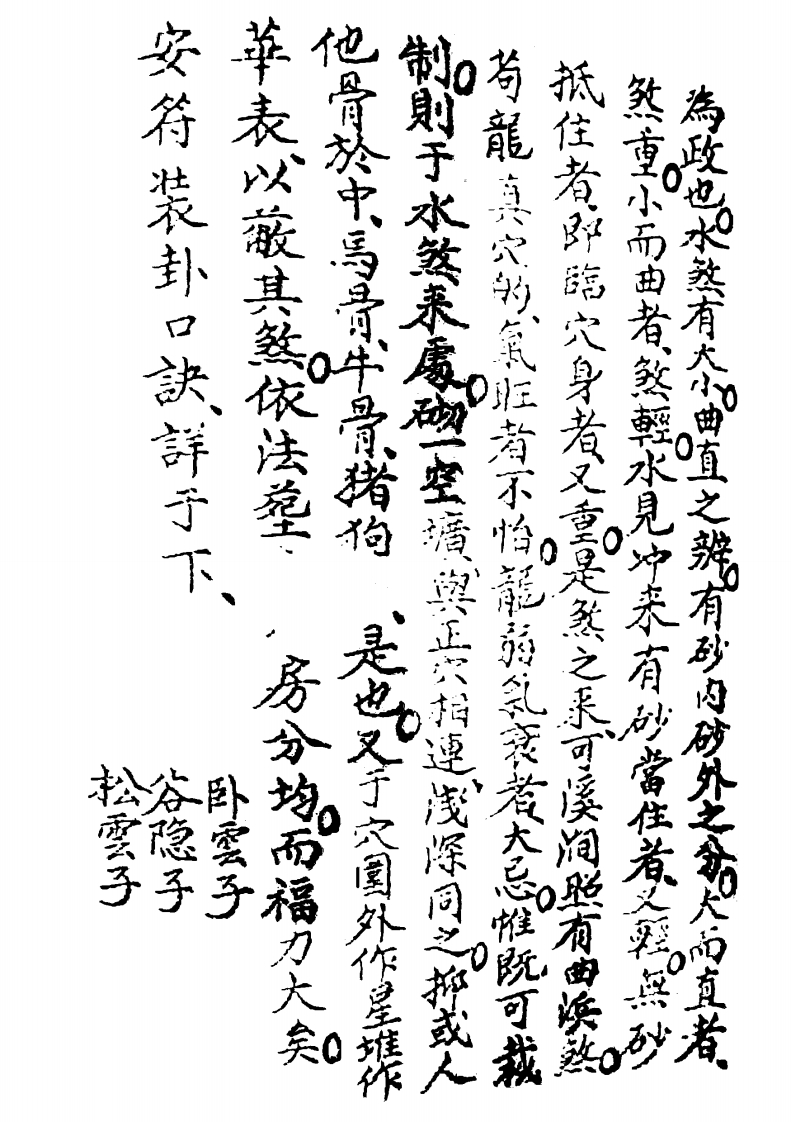 為政也。水煞有大小。曲直之辨。有砂内砂外之分。大而直者、
煞重。小而曲者、煞輕。水見冲来有砂當住者、又輕。無砂
抵住者、即臨穴身者、又重。是煞之来、可溪澗照有曲浜煞。
苟龍真穴的、氣旺者不怕。龍弱氣衰者、大忌。惟既可裁
制。則于水煞来處。砌一空壙、與正穴相連、浅深同之。抑或人
他骨於中、馬骨、牛骨、猪狗、是也。又于穴圍外作星堆作
華表、以蔽其煞。依法塟、房分均。而福力大矣。
安符装卦口訣、詳于下、
卧雲子
谷隐子
松雲子